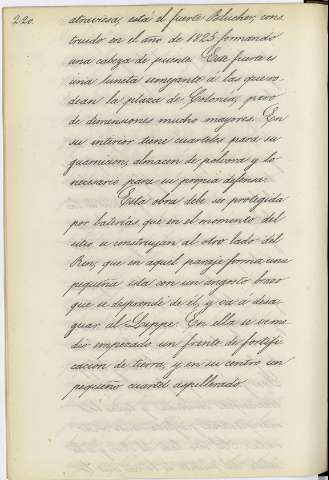 220.
atraviesa, está el fuerte Blucher, cons
truido en el año de 1825 formando
una cabeza de puente. Este fuerte es
una luneta semejante á las que ro-
dean la plaza de Colonia, pero
de demensiones mucho mayores. En
su interior tiene cuarteles para su
guarnicion, almacen de polvora y lo
necesario para su propia defensa.
Esta obra debe ser protegida
por baterías que en el momento del
sitio se construyan al otro lado del
Rin, que en aquel paraje forma una
pequeña isla con un angosto brazo
que se desprende de él, y va a desa-
guar al Lippe. En ella se vemo
dio empezado un frente de fortifi
cacion de tierra, y en su centro un
pequeño cuartel aspillerado.